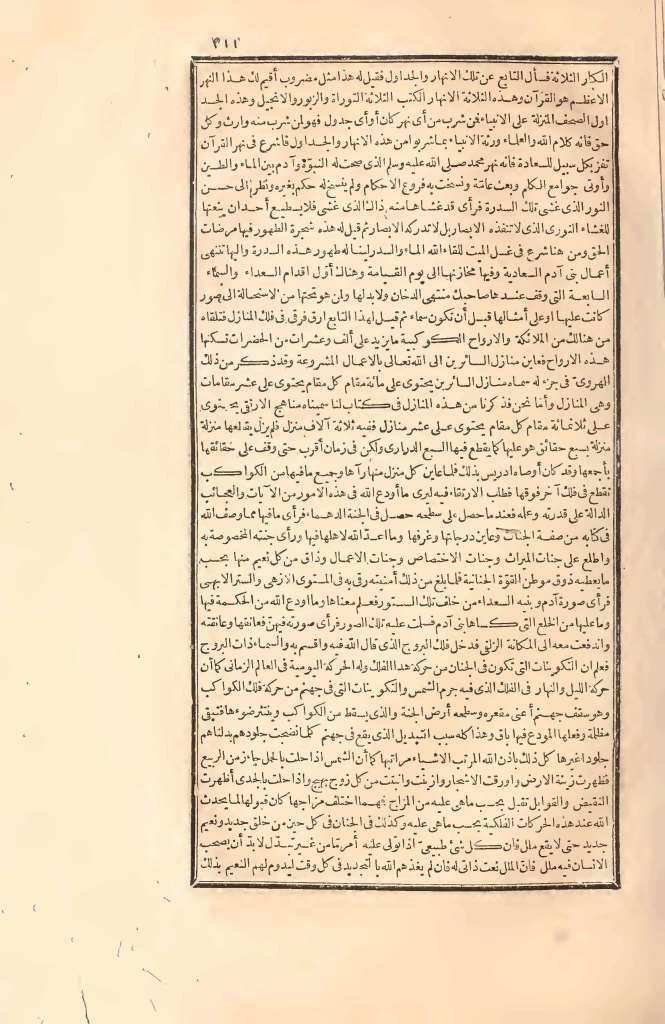 ٣١١
الكبار الثلاثة فسأل التابع عن تلك الانهار والجداول فقيل له هذا مثل مضروب أقيم لك هذا النهر
الاعظم هو القرآن وهذه الثلاثة الانهار الكتب الثلاثة التوراة والزبور والانجيل وهذه الجد
اول الصحف المنزلة على الانبياء فمن شرب من أى نهر كان أو أى جدول فهو لمن شرب منه وارث وكل
حق فانه كلام الله والعلماء ورثة الانبياء بما شربوا من هذه الانهار والجداول فاشرع فى نهر القرآن
تفز بكل سبيل للسعادة فانه نهر محمد صلى الله عليه وسلم الذى صحت له النبوة وآدم بين الماء والطين
وأوتى جوامع الكلم وبعث عامّة ونسخت به فروع الاحكام ولم ينسخ له حكم بغيره ونظر الى حسن
النور الذى غشى تلك السدرة فرأى قد غشاها منه ذاك الذى غشى فلا يستطيع أحد ان ينعتها
للغشاء النورى الذى لا تنفذه الابصار بل لا تدركه الابصار ثم قيل له هذه شجرة الطهور فيها مرضات
الحق ومن هنا شرع فى غسل الميت للقاء الله الماء والسدر لينا له طهور هذه السدرة واليها تنتهى
أعمال بنى آدم السعادية وفيها مخازنها الى يوم القيامة وهنالك أول اقدام السعداء والسماء
السابعة التى وقف عندها صاحبك منتهى الدخان ولا بد لها ولمن هو تحتها من الاستحالة الى صور
كانت عليها او على أمثالها قبل أن تكون سماء ثم قيل لهذا التابع ارق فرقى فى فلك المنازل فتلقاه
من هنالك من الملائكة والارواح الكوكبية ما يزيد على ألف وعشرات من الحضرات تسكنها
هذه الارواح فعاين منازل السائرين الى الله تعالى بالاعمال المشروعة وقد ذكر من ذلك
الهروى فى جزء له سماه منازل السائرين يحتوى على مائة مقام كل مقام يحتوى على عشر مقامات
وهى المنازل وأما نحن فذكرنا من هذه المنازل فى كتاب لنا سميناه مناهج الارتقى يحتوى
على ثلثمائة مقام كل مقام يحتوى على عشر منازل ففيه ثلاثة آلاف منزل فلم يزل يقطعها منزلة
منزلة بسبع حقائق هو عليها كما يقطع فيها السبع الدرارى ولكن فى زمان أقرب حتى وقف على حقائقها
بأجمعها وقد كان أوصاه ادريس بذلك فلما عاين كل منزل منها رآها وجميع ما فيها من الكواكب
تقطع فى فلك آخر فوقها فطلب الارتقاء فيه ليرى ما أودع الله فى هذه الامور من الآيات والعجائب
الدالة على قدرته وعلمه فعند ما حصل على سطحه حصل فى الجنة الدهماء فرأى ما فيها مما وصف الله
فى كتابه من صفة الجنات وعاين درجاتها وغرفها وما اعدّ الله لاهلها فيها ورأى جنته المخصوصة به
واطلع على جنات الميراث وجنات الاختصاص وجنات الاعمال وذاق من كل نعيم منها بحسب
ما يعطيه ذوق موطن القوّة الجنانية فلما بلغ من ذلك أمنيته رقى به فى المستوى الازهى والستر الابهى
فرأى صورة آدم وبنيه السعداء من خلف تلك الستور فعلم معناها وما اودع الله من الحكمة فيها
وما عليها من الخلع التى كساها بنى آدم فسلمت عليه تلك الصور فرأى صورته فيهنّ فعانقها وعانقته
واندفعت معه الى المكانة الزلفى فدخل فلك البروج الذى قال الله فيه واقسم به والسماء ذات البروج
فعلم ان التكوينات التى تكون فى الجنان من حركة هذا الفلك وله الحركة اليومية فى العالم الزمانى كما أن
حركة الليل والنهار فى الفلك الذى فيه جرم الشمس والتكوينات التى فى جهنم من حركة فلك الكواكب
وهو سقف جهنم أعنى مقعره وسطحه أرض الجنة والذى يسقط من الكواكب وينتثر ضوءها فتبقى
مظلمة وفعلها المودع فيها باق وهذا كله سبب التبديل الذى يقع فى جهنم كلما نضجت جلودهم بدلناهم
جلودا غيرها كل ذلك باذن الله المرتب الاشياء مراتبها كما أن الشمس اذا حلت بالحمل جاء زمن الربيع
فظهرت زينة الارض واورقت الاشجار وازينت وانبتت من كل زوج بهيج واذا حلت بالجدى أظهرت
النقيض والقوابل تقبل بحسب ماهى عليه من المزاج فمهما اختلف مزاجها كان قبولها لما يحدث
الله عند هذه الحركات الفلكية بحسب ماهى عليه وكذلك فى الجنان فى كل حين من خلق جديد ونعيم
جديد حتى لا يقع ملل فان كل شئ طبيعىّ اذا توالى عليه أمر تما من غير تبدّل لا بدّ أن يصحب
الانسان فيه ملل فانّ الملل نعت ذاتى له فان لم يغذهم الله بالتجديد فى كل وقت ليدوم لهم النعيم بذلك